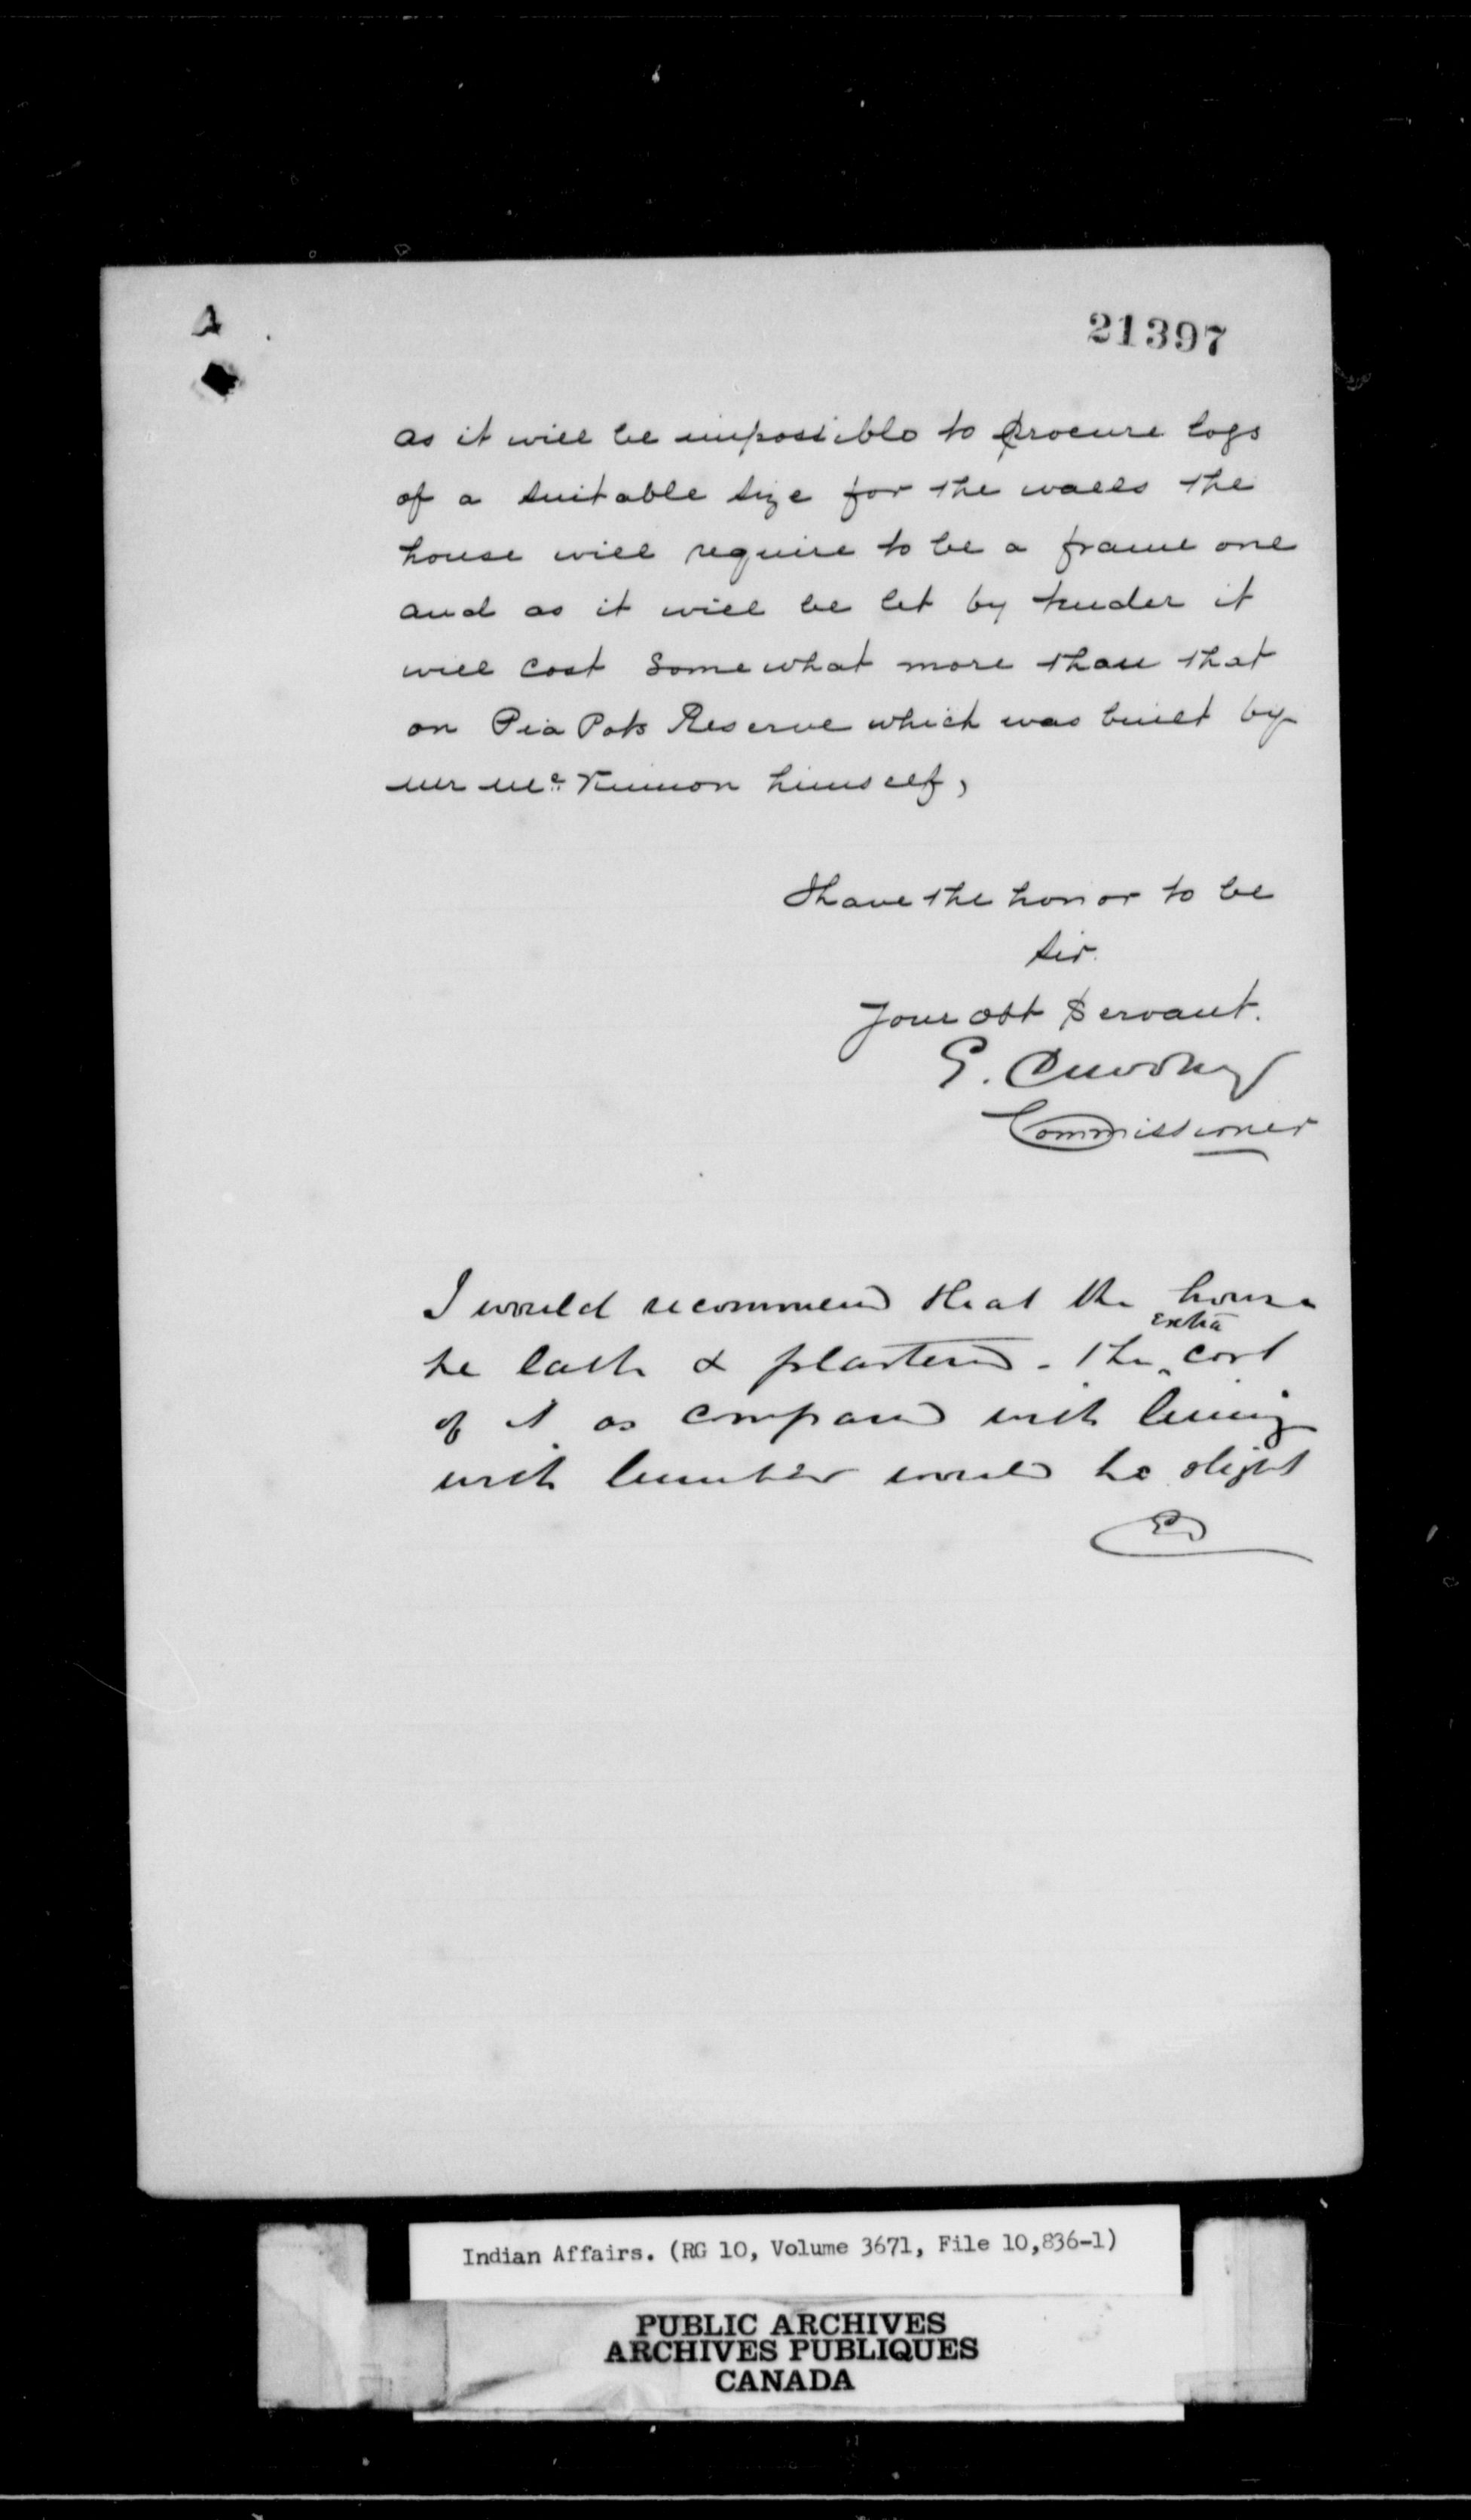 21397
as it will be impossible to procure logs
of a suitable size for the walls the
house will require to be a frame one
and as it will be let by tender it
will cost somewhat more than that
on Pia Pots Reserve which was built by
Mr McKinnon himself,
I have the honor to be
Sir.
Your obt Servant.
E. Dewdney
Commissioner
I would recommend that the house
be lath & plastered - The extra cost
of it as compared with lining
with lumber would be slight
ED
Indian Affairs. (RG 10, Volume 3671, File 10,836-1)
PUBLIC ARCHIVES
ARCHIVES PUBLIQUES
CANADA